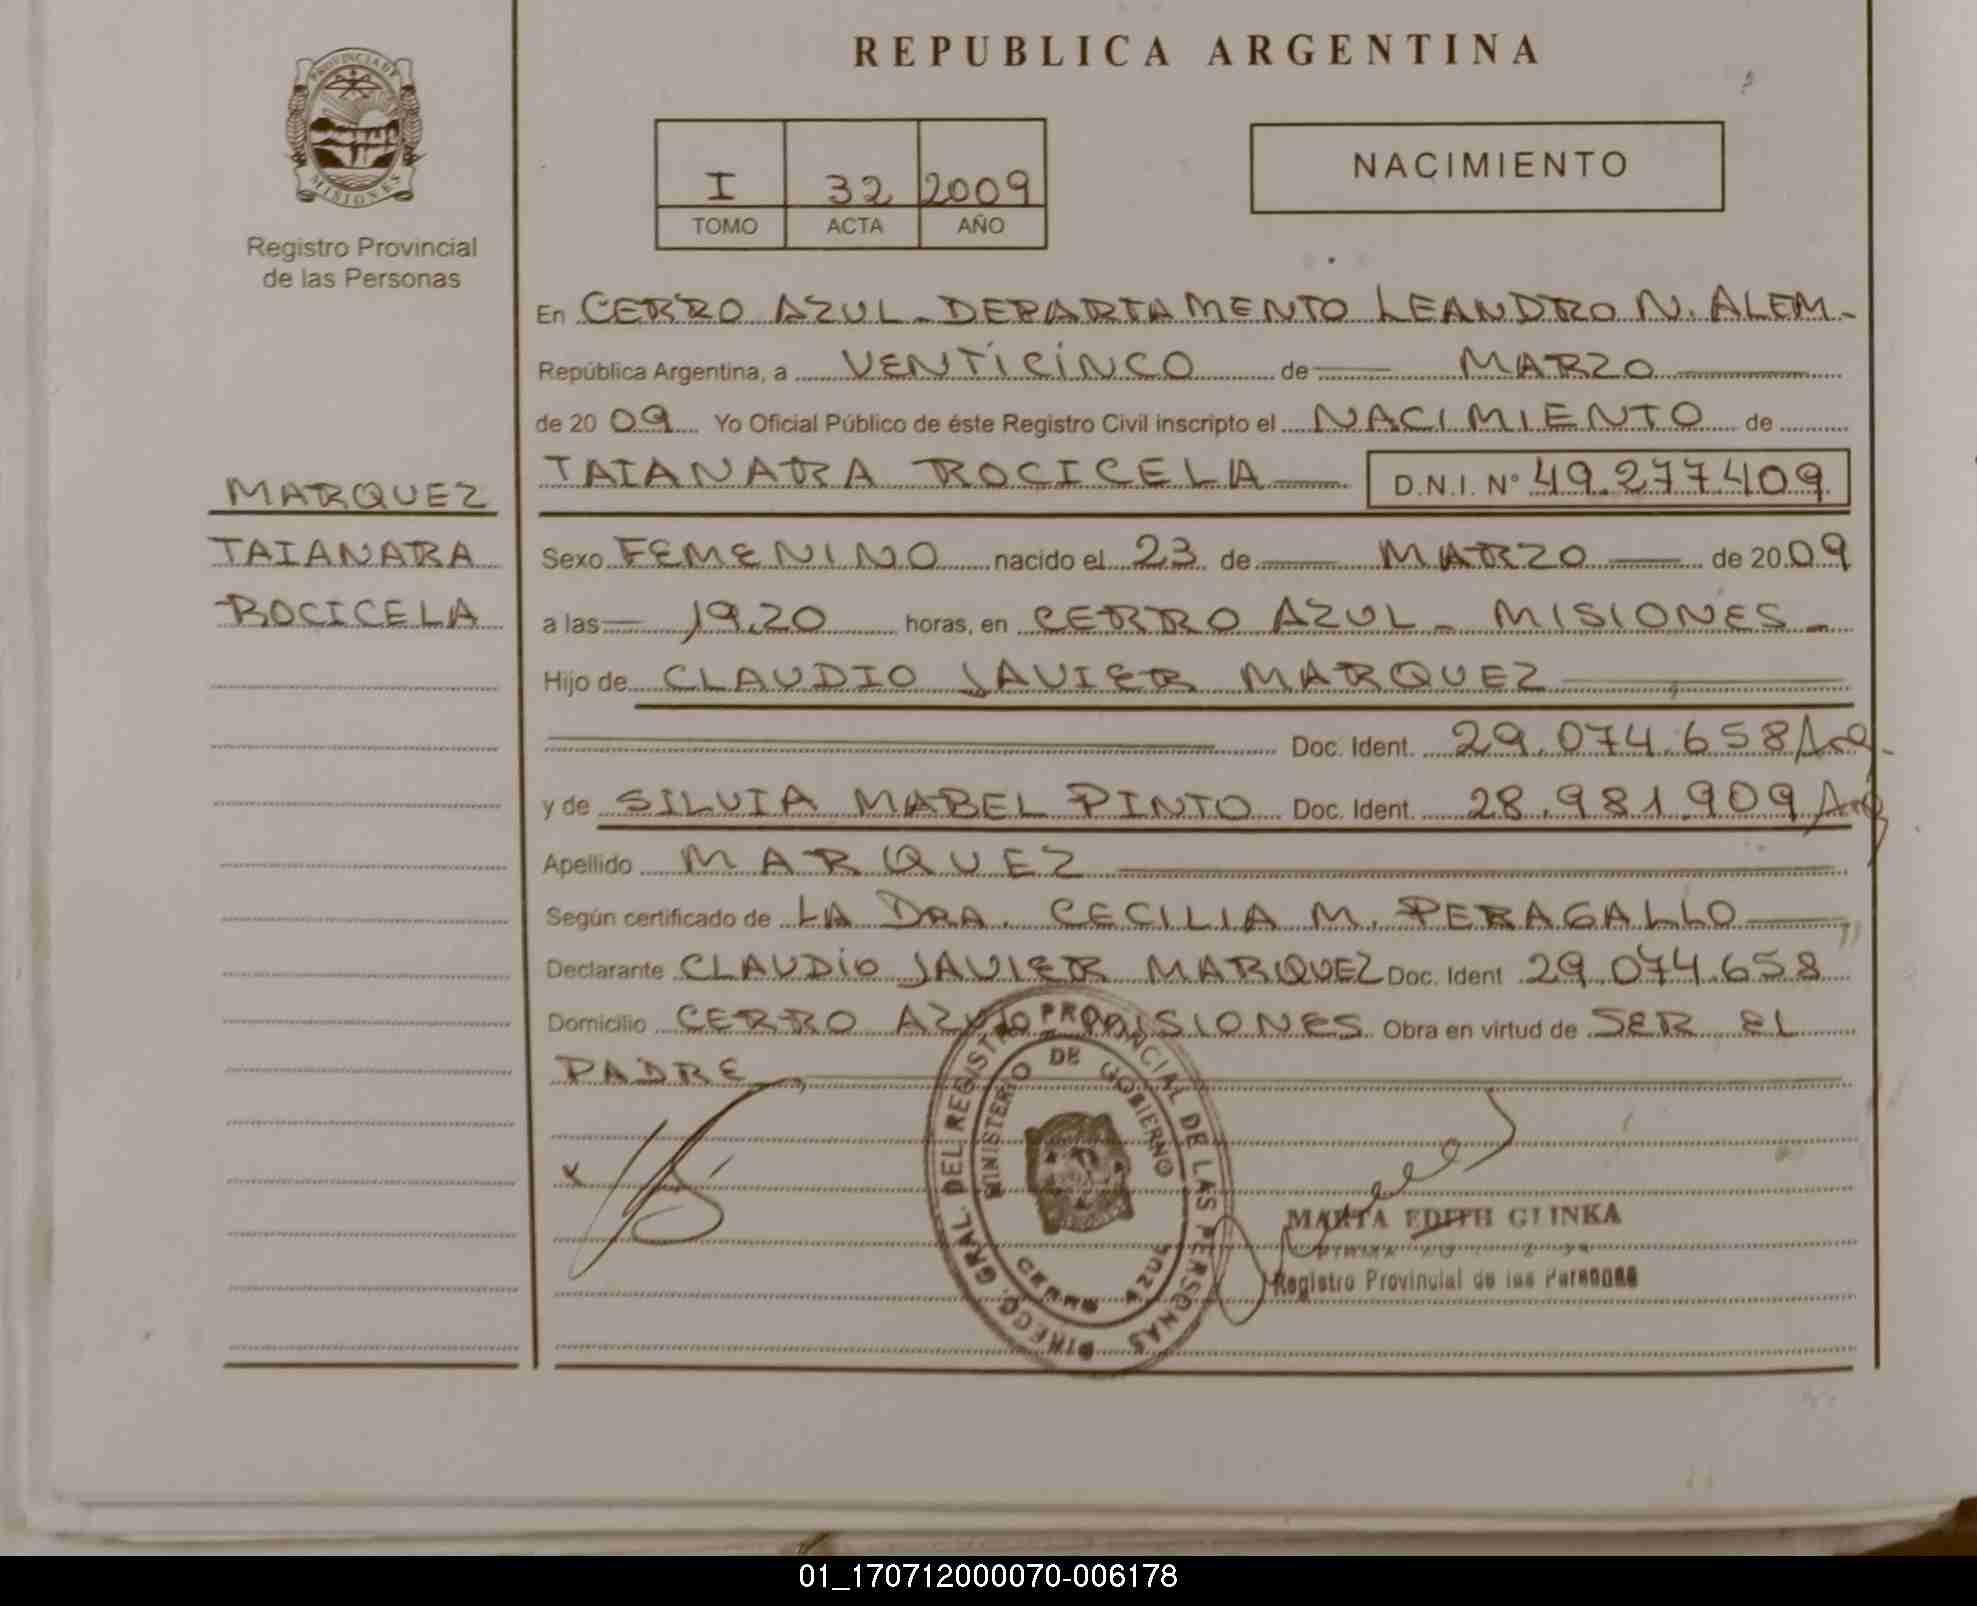 REPUBLICA ARGENTINA
PROVINCIA DE
MISIONES
Registro Provincial
de las Personas
I 32 2009
TOMO ACTA AÑO
NACIMIENTO
En CERRO AZUL - DEPARTAMENTO LEANDRO N. ALEM -
República Argentina, a VENTICINCO de MARZO
de 2009 Yo Oficial Público de éste Registro Civil inscripto el NACIMIENTO de
MARQUEZ
TAIANARA
ROCICELA
TAIANARA ROCICELA D.N.I. N° 49.277.409
Sexo FEMENINO nacido el 23 de MARZO de 2009
a las 19.20 horas, en CERRO AZUL - MISIONES -
Hijo de CLAUDIO JAVIER MARQUEZ
Doc. Ident. 29.074.658 Arg.
y de SILVIA MABEL PINTO Doc. Ident. 28.981.909 Arg
Apellido MARQUEZ
Según certificado de LA DRA. CECILIA M. PERAGALLO
Declarante CLAUDIO JAVIER MARQUEZ Doc. Ident 29.074.658
Domicilio CERRO AZUL MISIONES Obra en virtud de SER EL
PADRE
DIRECC. GRAL. DEL REGISTRO PROVINCIAL DE LAS PERSONAS
MINISTERIO DE GOBIERNO
CERRO AZUL
X
MARTA EDITH GLINKA
Registro Provincial de las Personas
01_170712000070-006178